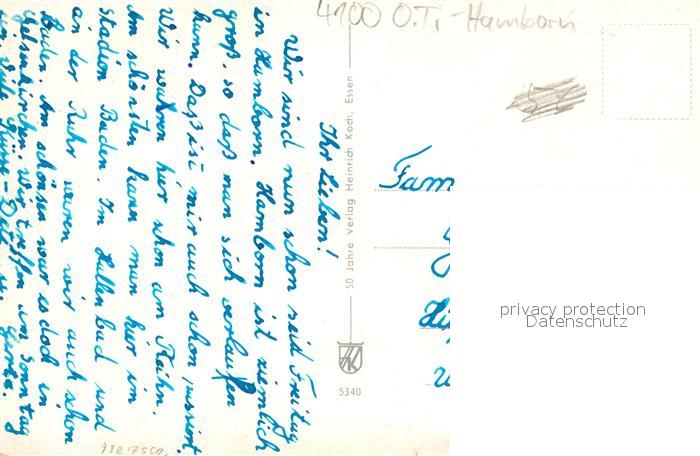 4100 O.T. Hamborn
Ihr Lieben!
Wir sind nun schon seid Freitag
in Hamborn. Hamborn ist ziemlich
groß, so daß man sich verlaufen
kann. Daß ist mir auch schon passiert.
Wir wahren hir schon am Rhein.
Am schönsten kann man hir im
stadion Baden. Im Hallenbad und
an der Ruhr waren wir auch schon
Baden. Am schönsen war es doch in
Gelsenkirchen. Wir treffen am Sonntag
Viele Grüße
50 Jahre Verlag Heinrich Koch, Essen
HK
5340
Fam
privacy protection
Datenschutz